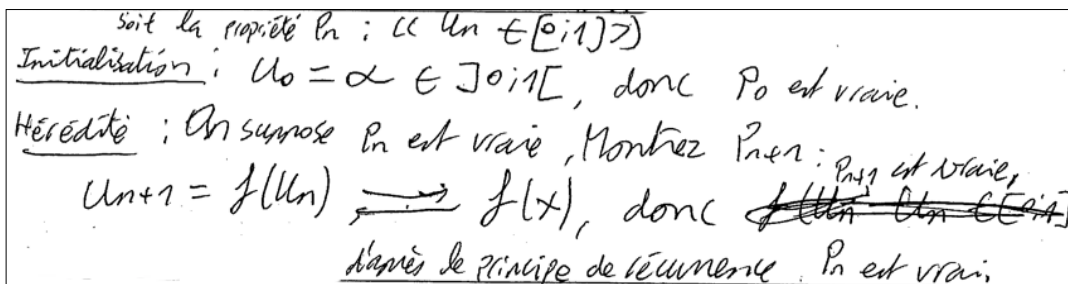 Soit la propriété Pn : << Un ∈ [0;1] >>
Initialisation : U0 = α ∈ ]0;1[, donc P0 est vraie.
Hérédité : On suppose Pn est vraie, Montrez Pn+1 :
Un+1 = f(Un) f(x), donc Pn+1 est vraie,
d'après le principe de récurrence Pn est vrai.